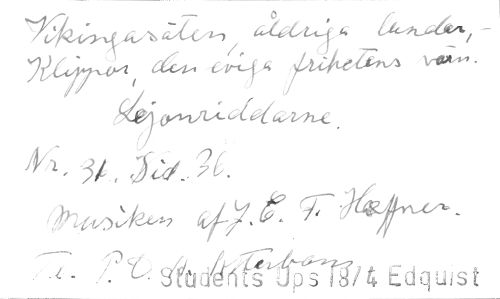 Vikingasäten, åldriga lunder,-
Klippor, den eviga frihetens värn.
Lejonriddarne.
Nr. 31. Sid. 36.
Musiken af J. C. F. Hæffner.
Te. P. D. A. Atterboms
Students Ups 18/4 Edquist